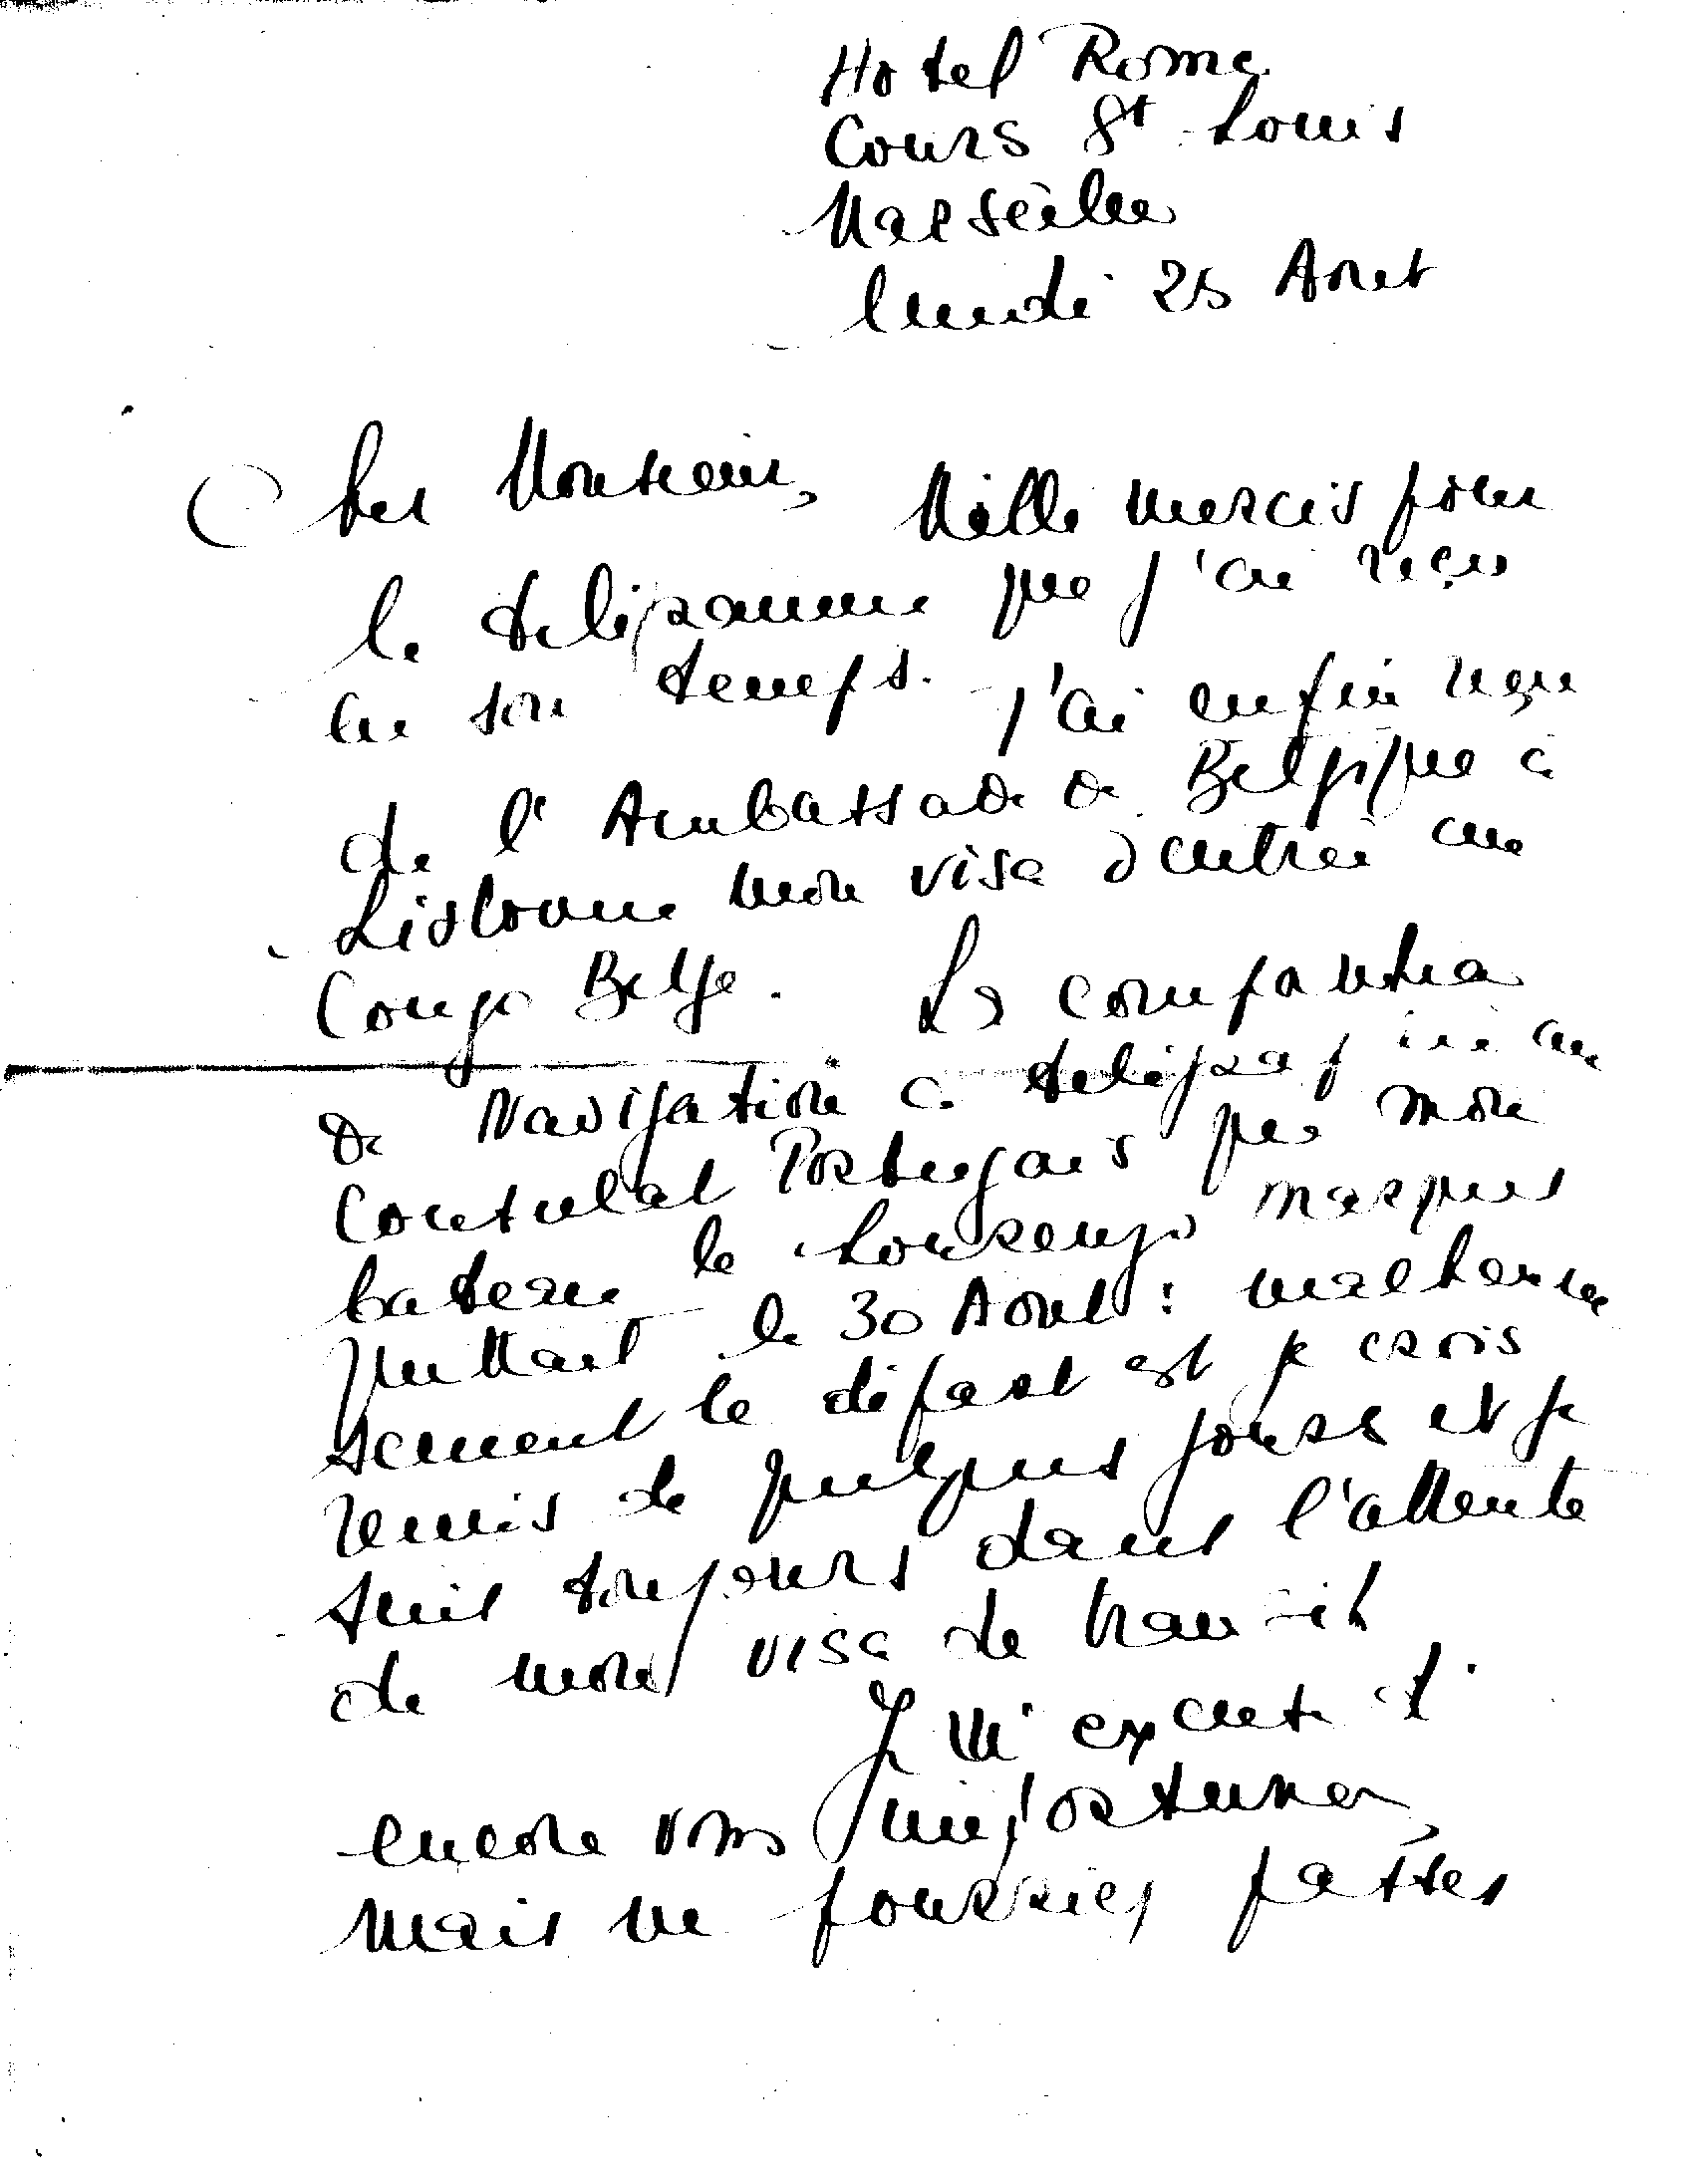 Hotel Rome
Cours St Louis
Marseille
lundi 25 Aout
Cher Monsieur, Mille mercis pour
le telegramme que j'ai reçu
en son temps. J'ai enfin reçu
de l'Ambassade de Belgique à
Lisbonne mon visa d'entrée au
Congo Belge. La companhia
de Navigation a telegraphié au
Consulat Portugais que mon
bateau le Lourenço Marques
quittait le 30 Aout : malheureu
sement le départ est je crois
remis de quelques jours et je
suis toujours dans l'attente
de mon visa de transit
Je m'excuse d'
encore vous importuner,
mais ne pourriez passer